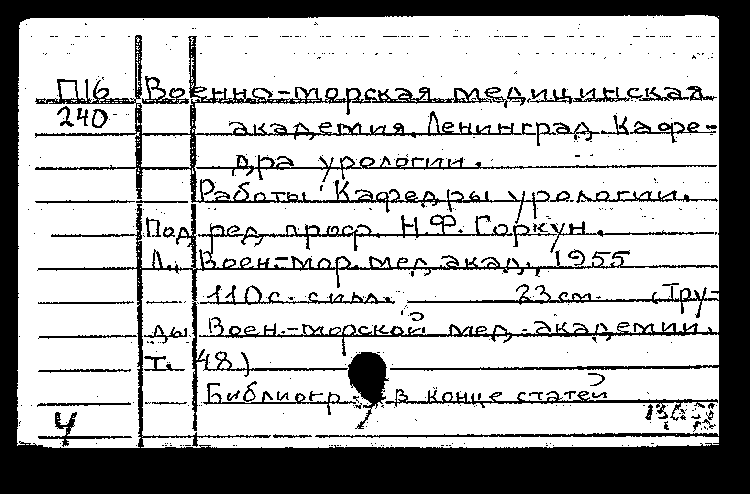 П16 Военно-морская медицинская
240 академия. Ленинград. Кафе-
дра урологии.
Работы Кафедры урологии.
Под ред. проф. Н.Ф. Горкун.
Л., Воен.-мор. мед. акад., 1955
110 с. с илл. 23 см. (Тру-
ды Воен.-морской мед. академии.
т. 48)
Библиогр. в конце статей
У